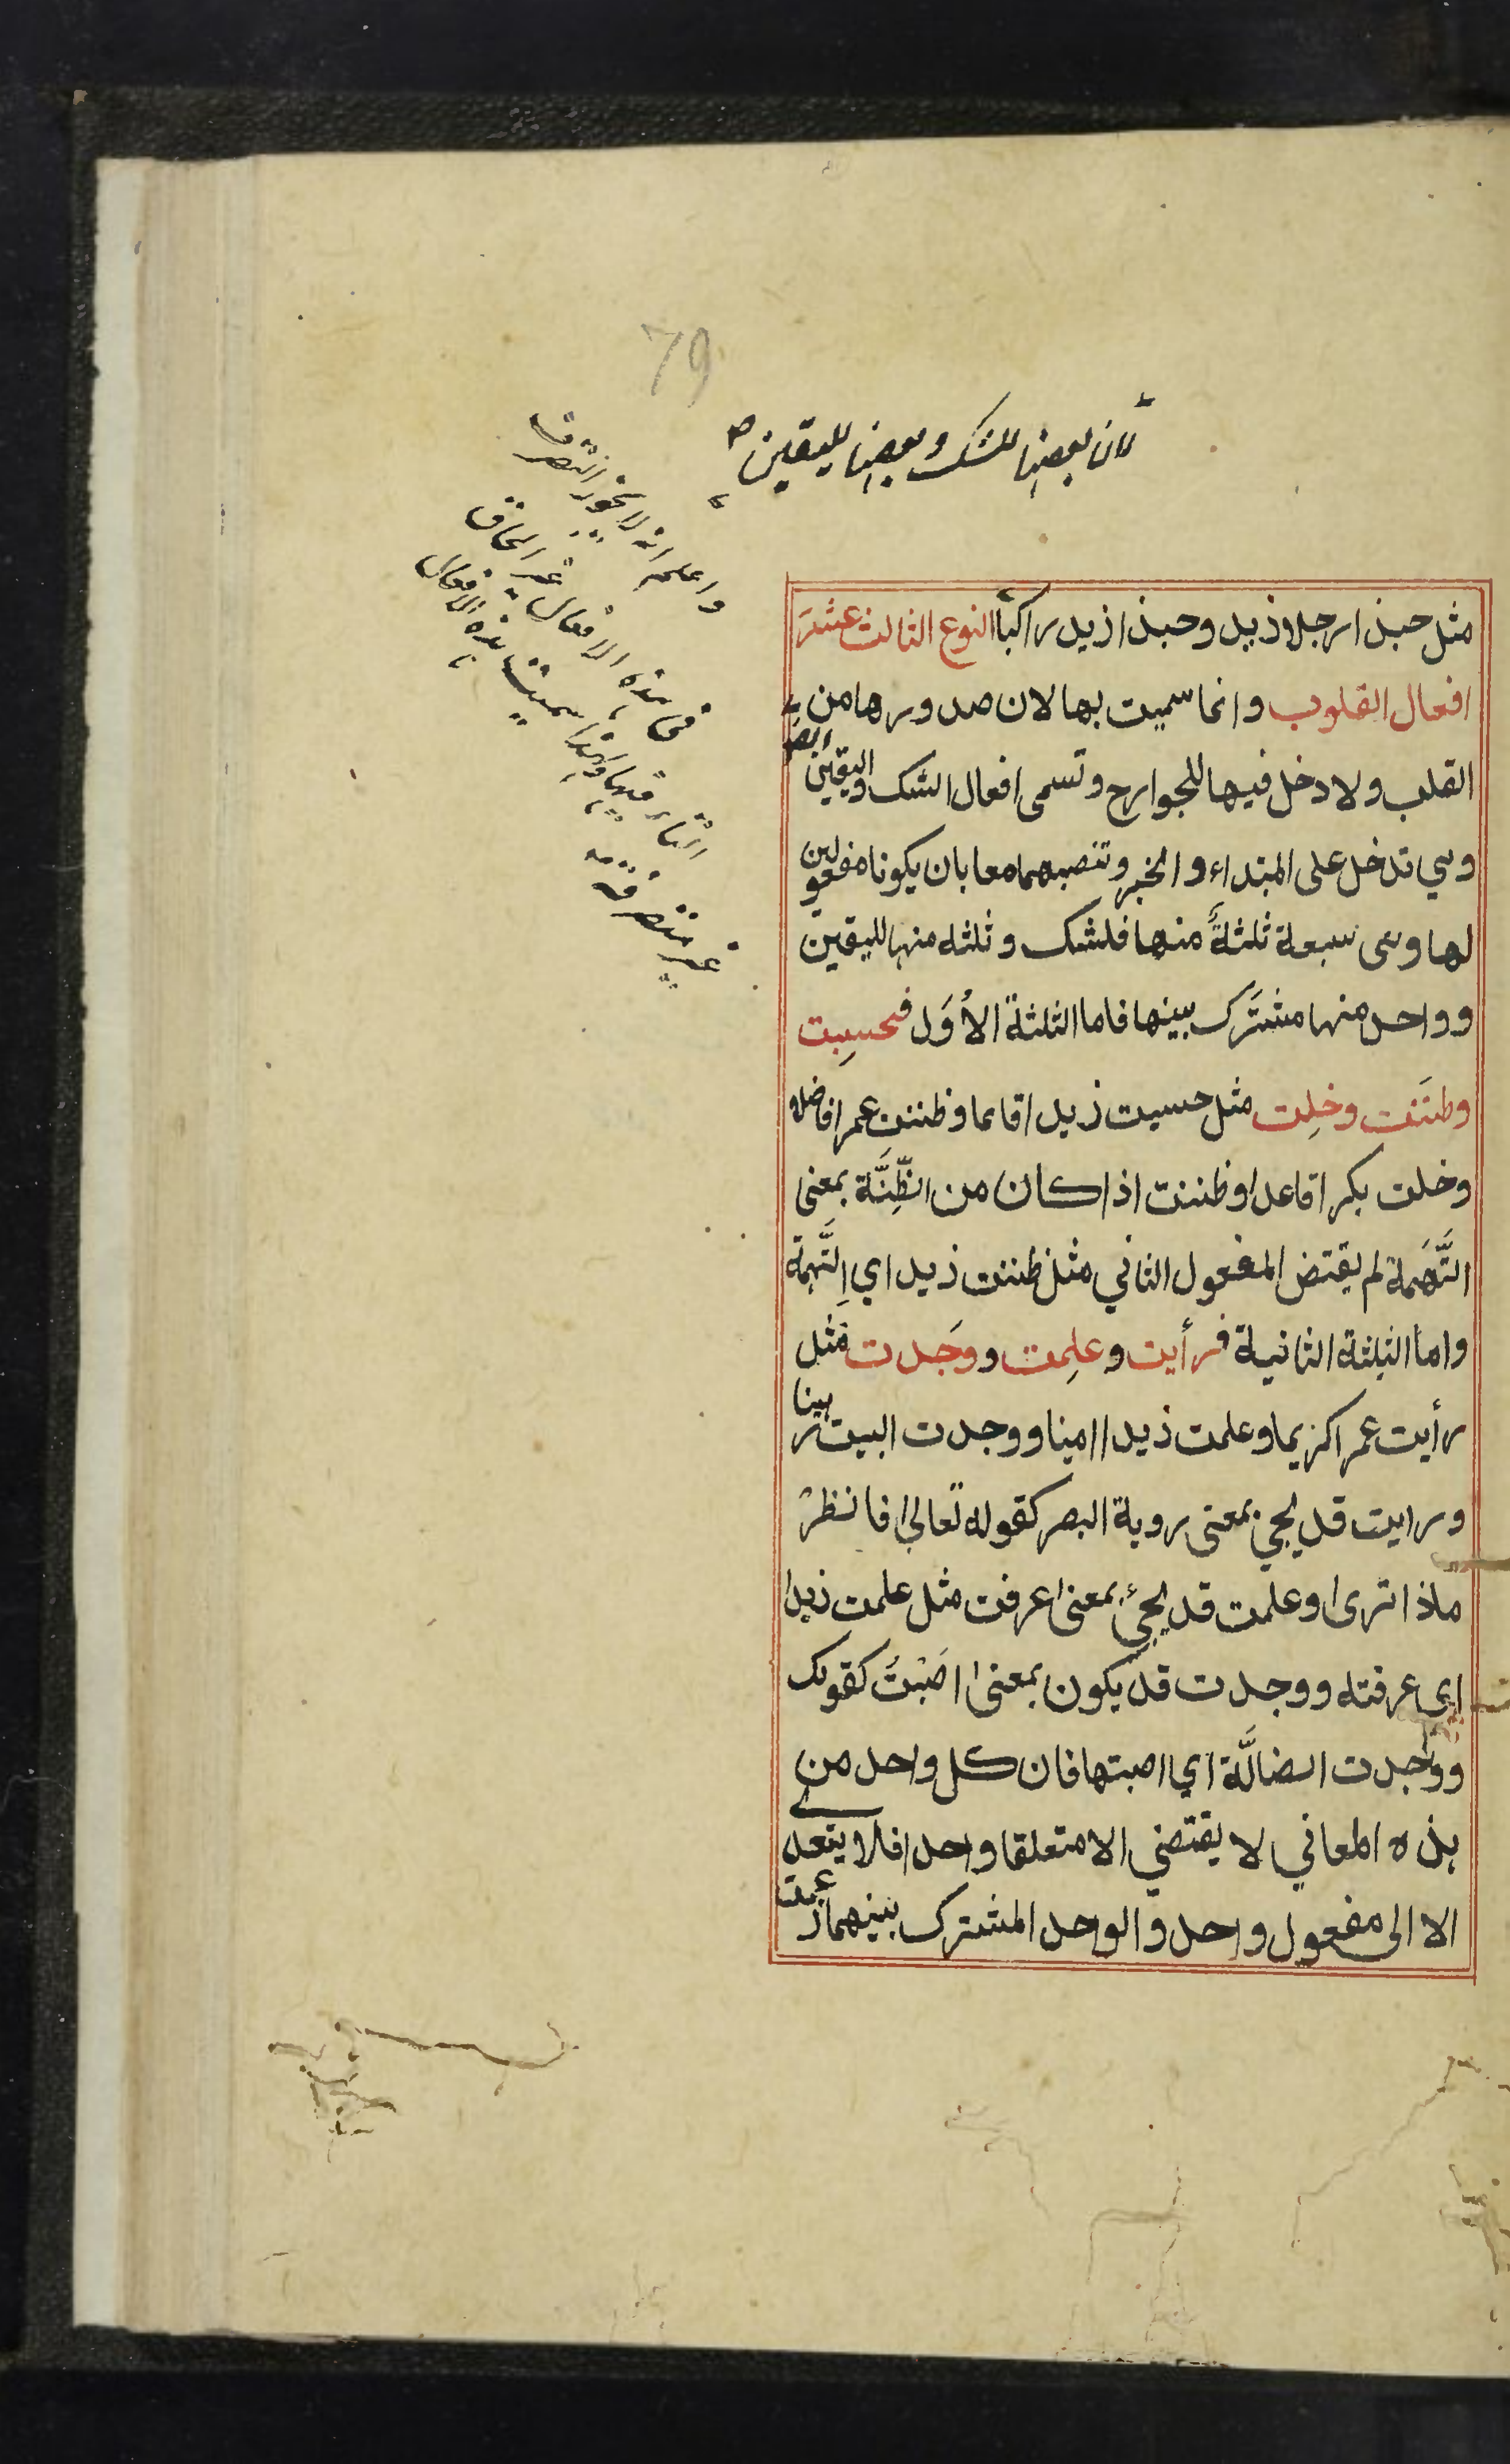 79
لان بعضها للشك وبعضها لليقين
واعلم انه لا يجوز التصرف
فى هذه الافعال غير الحاق
التاء فيها ولهذا سميت هذه الافعال
غير متصرفة
مثل حبذا رجلا زيد وحبذا زيد راكبًا النوع الثالث عشَرَ
افعال القلوب وانما سميت بها لان صدورها من
القلب ولا دخل فيها للجوارح وتسمى افعال الشك واليقين ايضا
وهي تدخل على المبتداء والخبر وتنصبهما معا بان يكونا مفعولين
لها وهى سبعة ثلثةٌ منها فلشك وثلثه منها لليقين
وواحد منها مشتَرَك بينها فاما الثلثة الأُوَل فحسِبت
وظنَنت وخِلت مثل حسبت زيدا قائما وظننت عمرا فاضلا
وخلت بكرا قاعدا وظننت اذا كان من الظِّنَّة بمعنى
التَّهَمة لم يقتض المفعول الثاني مثل ظننت زيدا اي اِتَّهمته
واما الثلثة الثانية فرأيت وعلِمت ووَجَدت مثل
رأيت عمرا كريما وعلمت زيدا امينا ووجدت البيت رهينا
ورايت قد يجيء بمعنى روية البصر كقوله تعالى فانظرْ
ماذا ترى وعلمت قد يجئ بمعنى عرفت مثل علمت زيدا
اى عرفته ووجدت قد يكون بمعنى اَصَبْتُ كقولك
ووجدت الضالَّة اي اصبتها فان كل واحد من
هذه المعاني لا يقتضي الا متعلقا واحدا فلا يتعدى
الا الى مفعول واحد والواحد المشترك بينهما زعمت